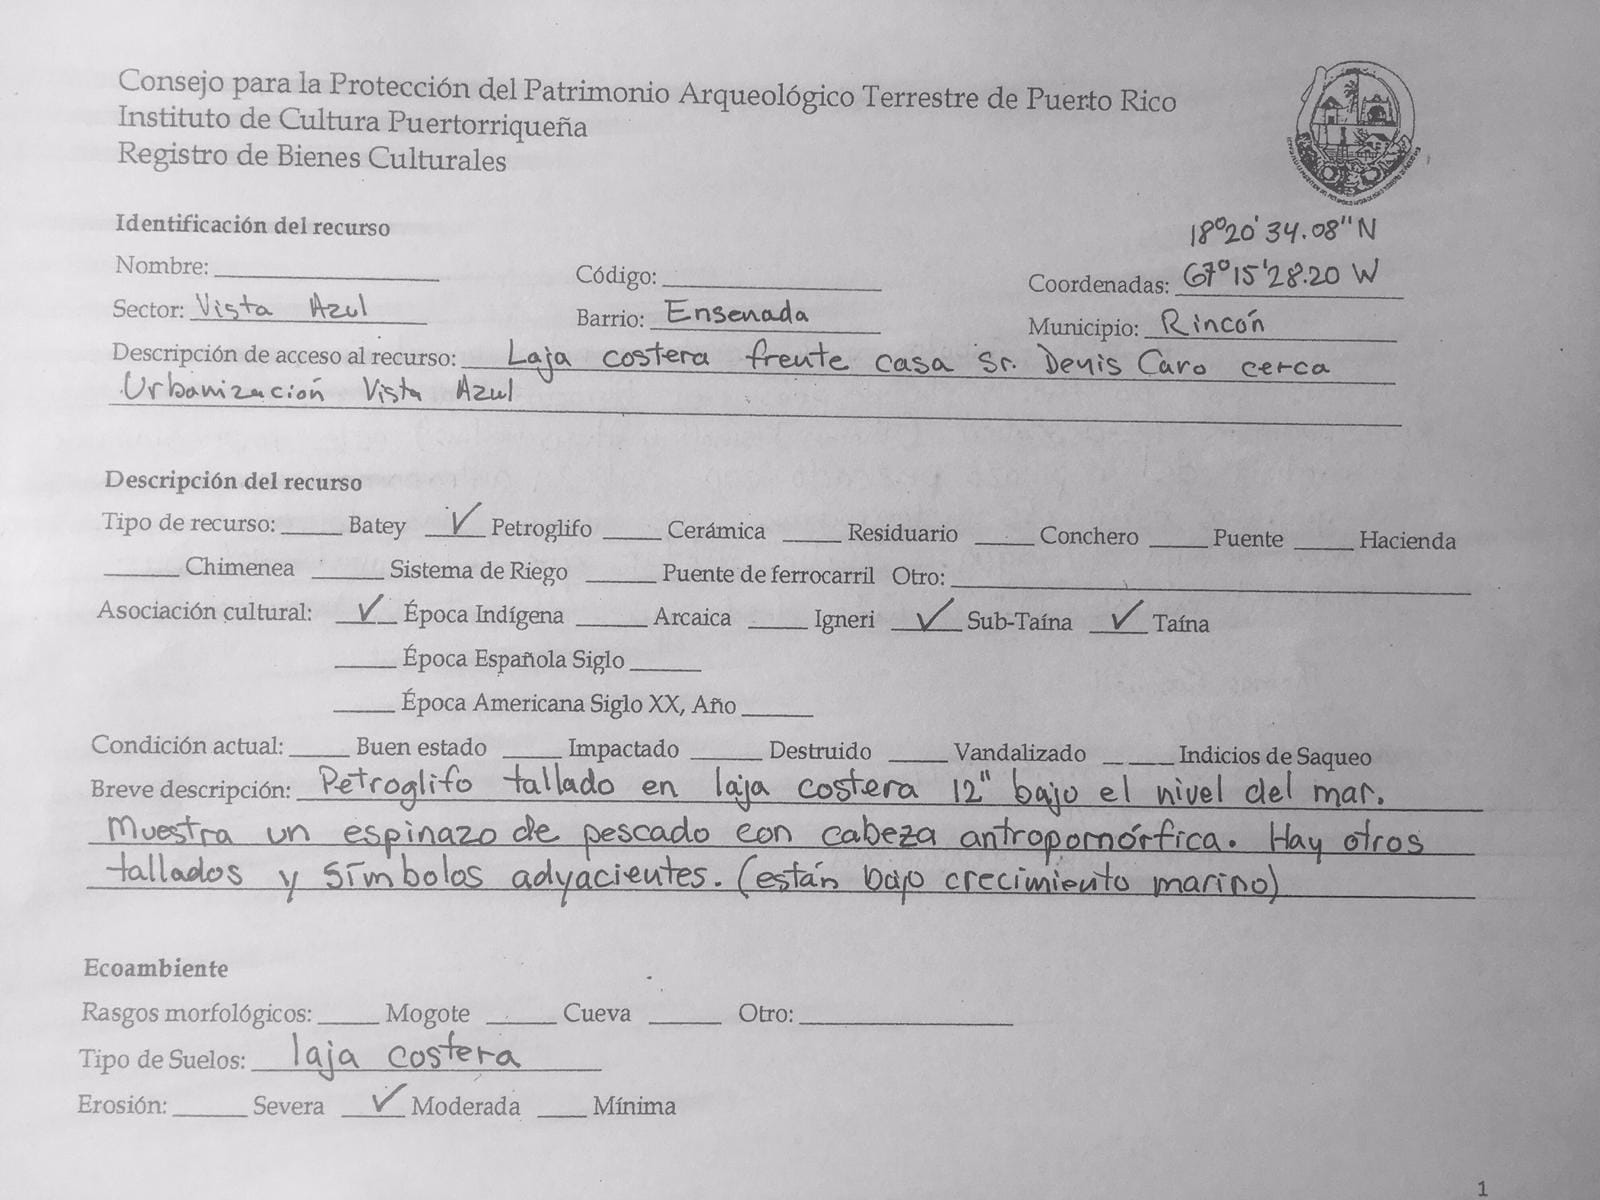 Consejo para la Protección del Patrimonio Arqueológico Terrestre de Puerto Rico
Instituto de Cultura Puertorriqueña
Registro de Bienes Culturales
Identificación del recurso
18°20'34.08"N
Nombre: ____ Código: ____ Coordenadas: 67°15'28.20 W
Sector: Vista Azul Barrio: Ensenada Municipio: Rincón
Descripción de acceso al recurso: Laja costera frente casa Sr. Denis Caro cerca
Urbanización Vista Azul
Descripción del recurso
Tipo de recurso: ____ Batey ✓ Petroglifo ____ Cerámica ____ Residuario ____ Conchero ____ Puente ____ Hacienda
____ Chimenea ____ Sistema de Riego ____ Puente de ferrocarril Otro: ____
Asociación cultural: ✓ Época Indígena ____ Arcaica ____ Igneri ✓ Sub-Taína ✓ Taína
____ Época Española Siglo ____
____ Época Americana Siglo XX, Año ____
Condición actual: ____ Buen estado ____ Impactado ____ Destruido ____ Vandalizado ____ Indicios de Saqueo
Breve descripción: Petroglifo tallado en laja costera 12" bajo el nivel del mar.
Muestra un espinazo de pescado con cabeza antropomórfica. Hay otros
tallados y símbolos adyacientes. (están bajo crecimiento marino)
Ecoambiente
Rasgos morfológicos: ____ Mogote ____ Cueva ____ Otro: ____
Tipo de Suelos: laja costera
Erosión: ____ Severa ✓ Moderada ____ Mínima
1